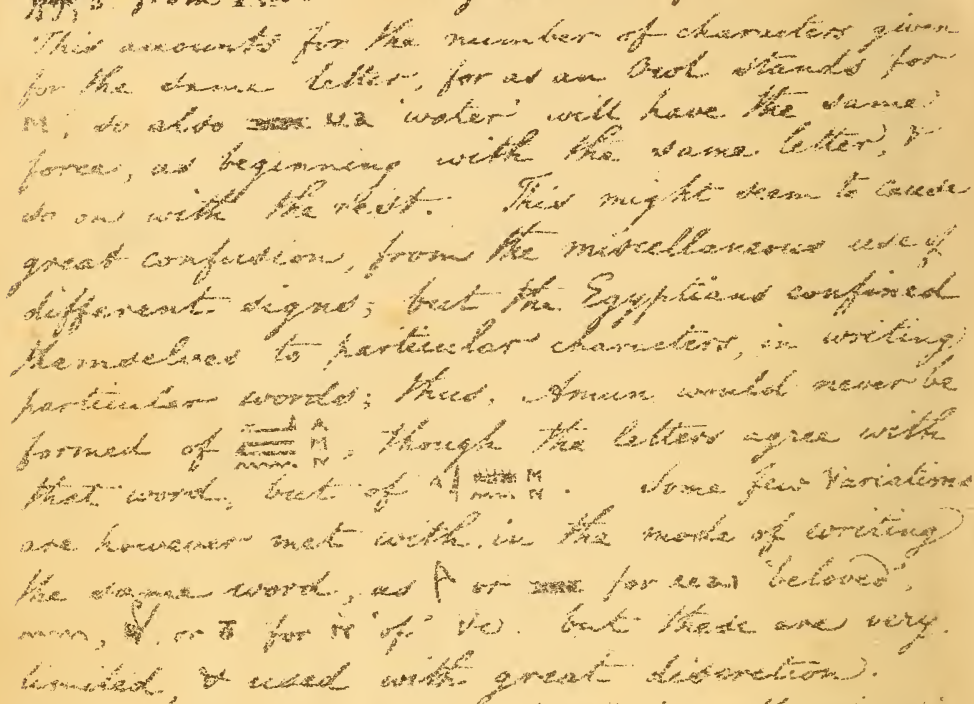 This amounts for the number of characters given
for the same letter, for as an Owl stands for
M, so also 'water' will have the same
force, as beginning with the same letter, &
so on with the rest. This might seem to cause
great confusion, from the miscellaneous use of
different signs; but the Egyptians confined
themselves to particular characters, in writing
particular words; thus. Amun would never be
formed of A M N, though the letters agree with
that word, but of A M N. Some few Variations
are however met with in the mode of writing
the same word, as or for 'beloved',
or for N 'of' &c. but these are very
limited, & used with great discretion.